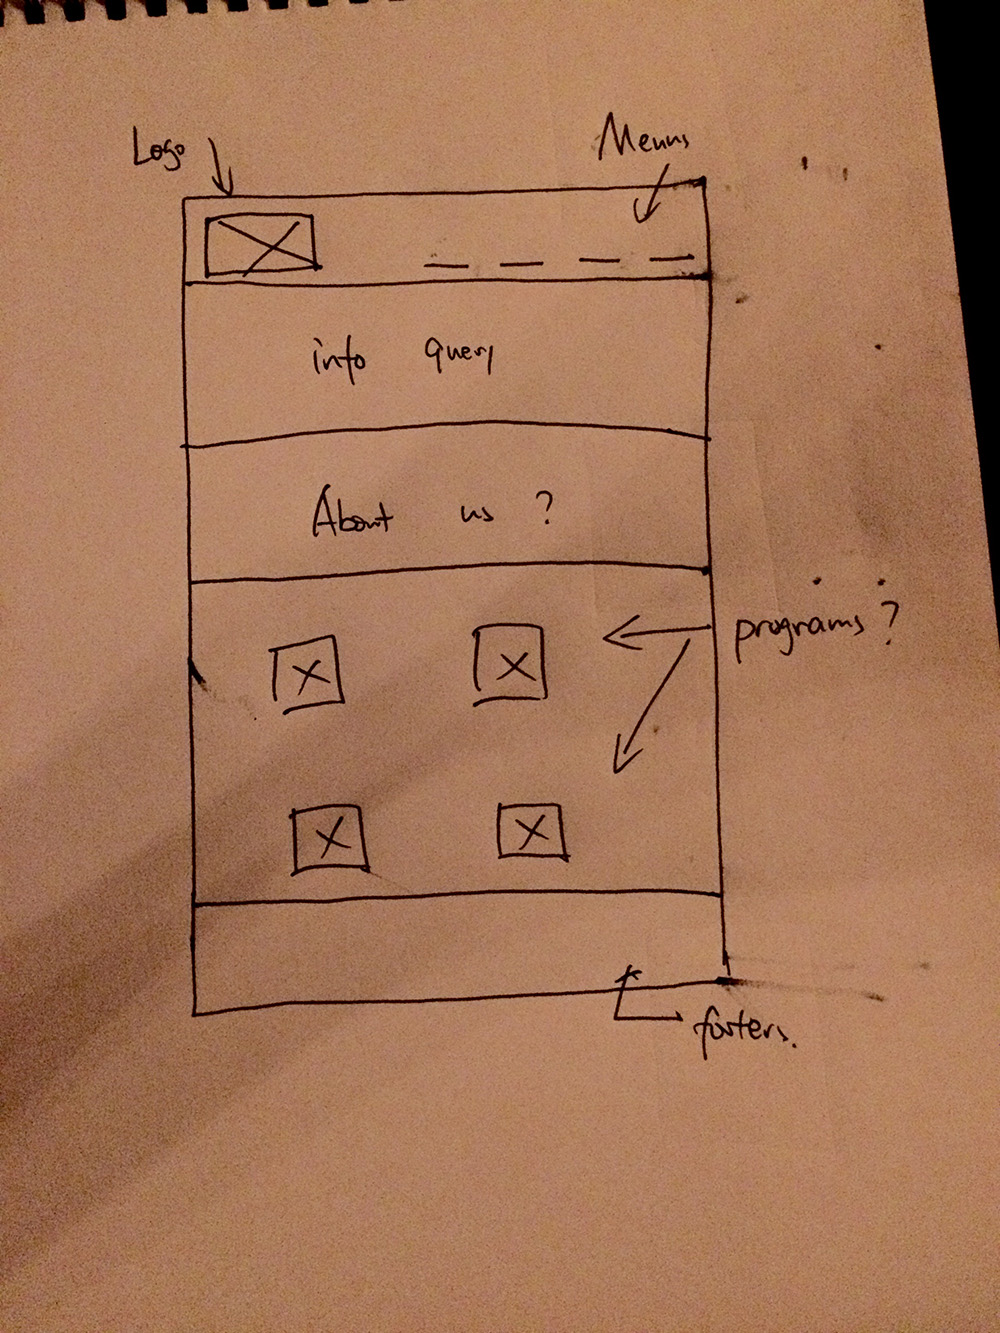 Logo
Menus
info query
About us ?
programs ?
footers.